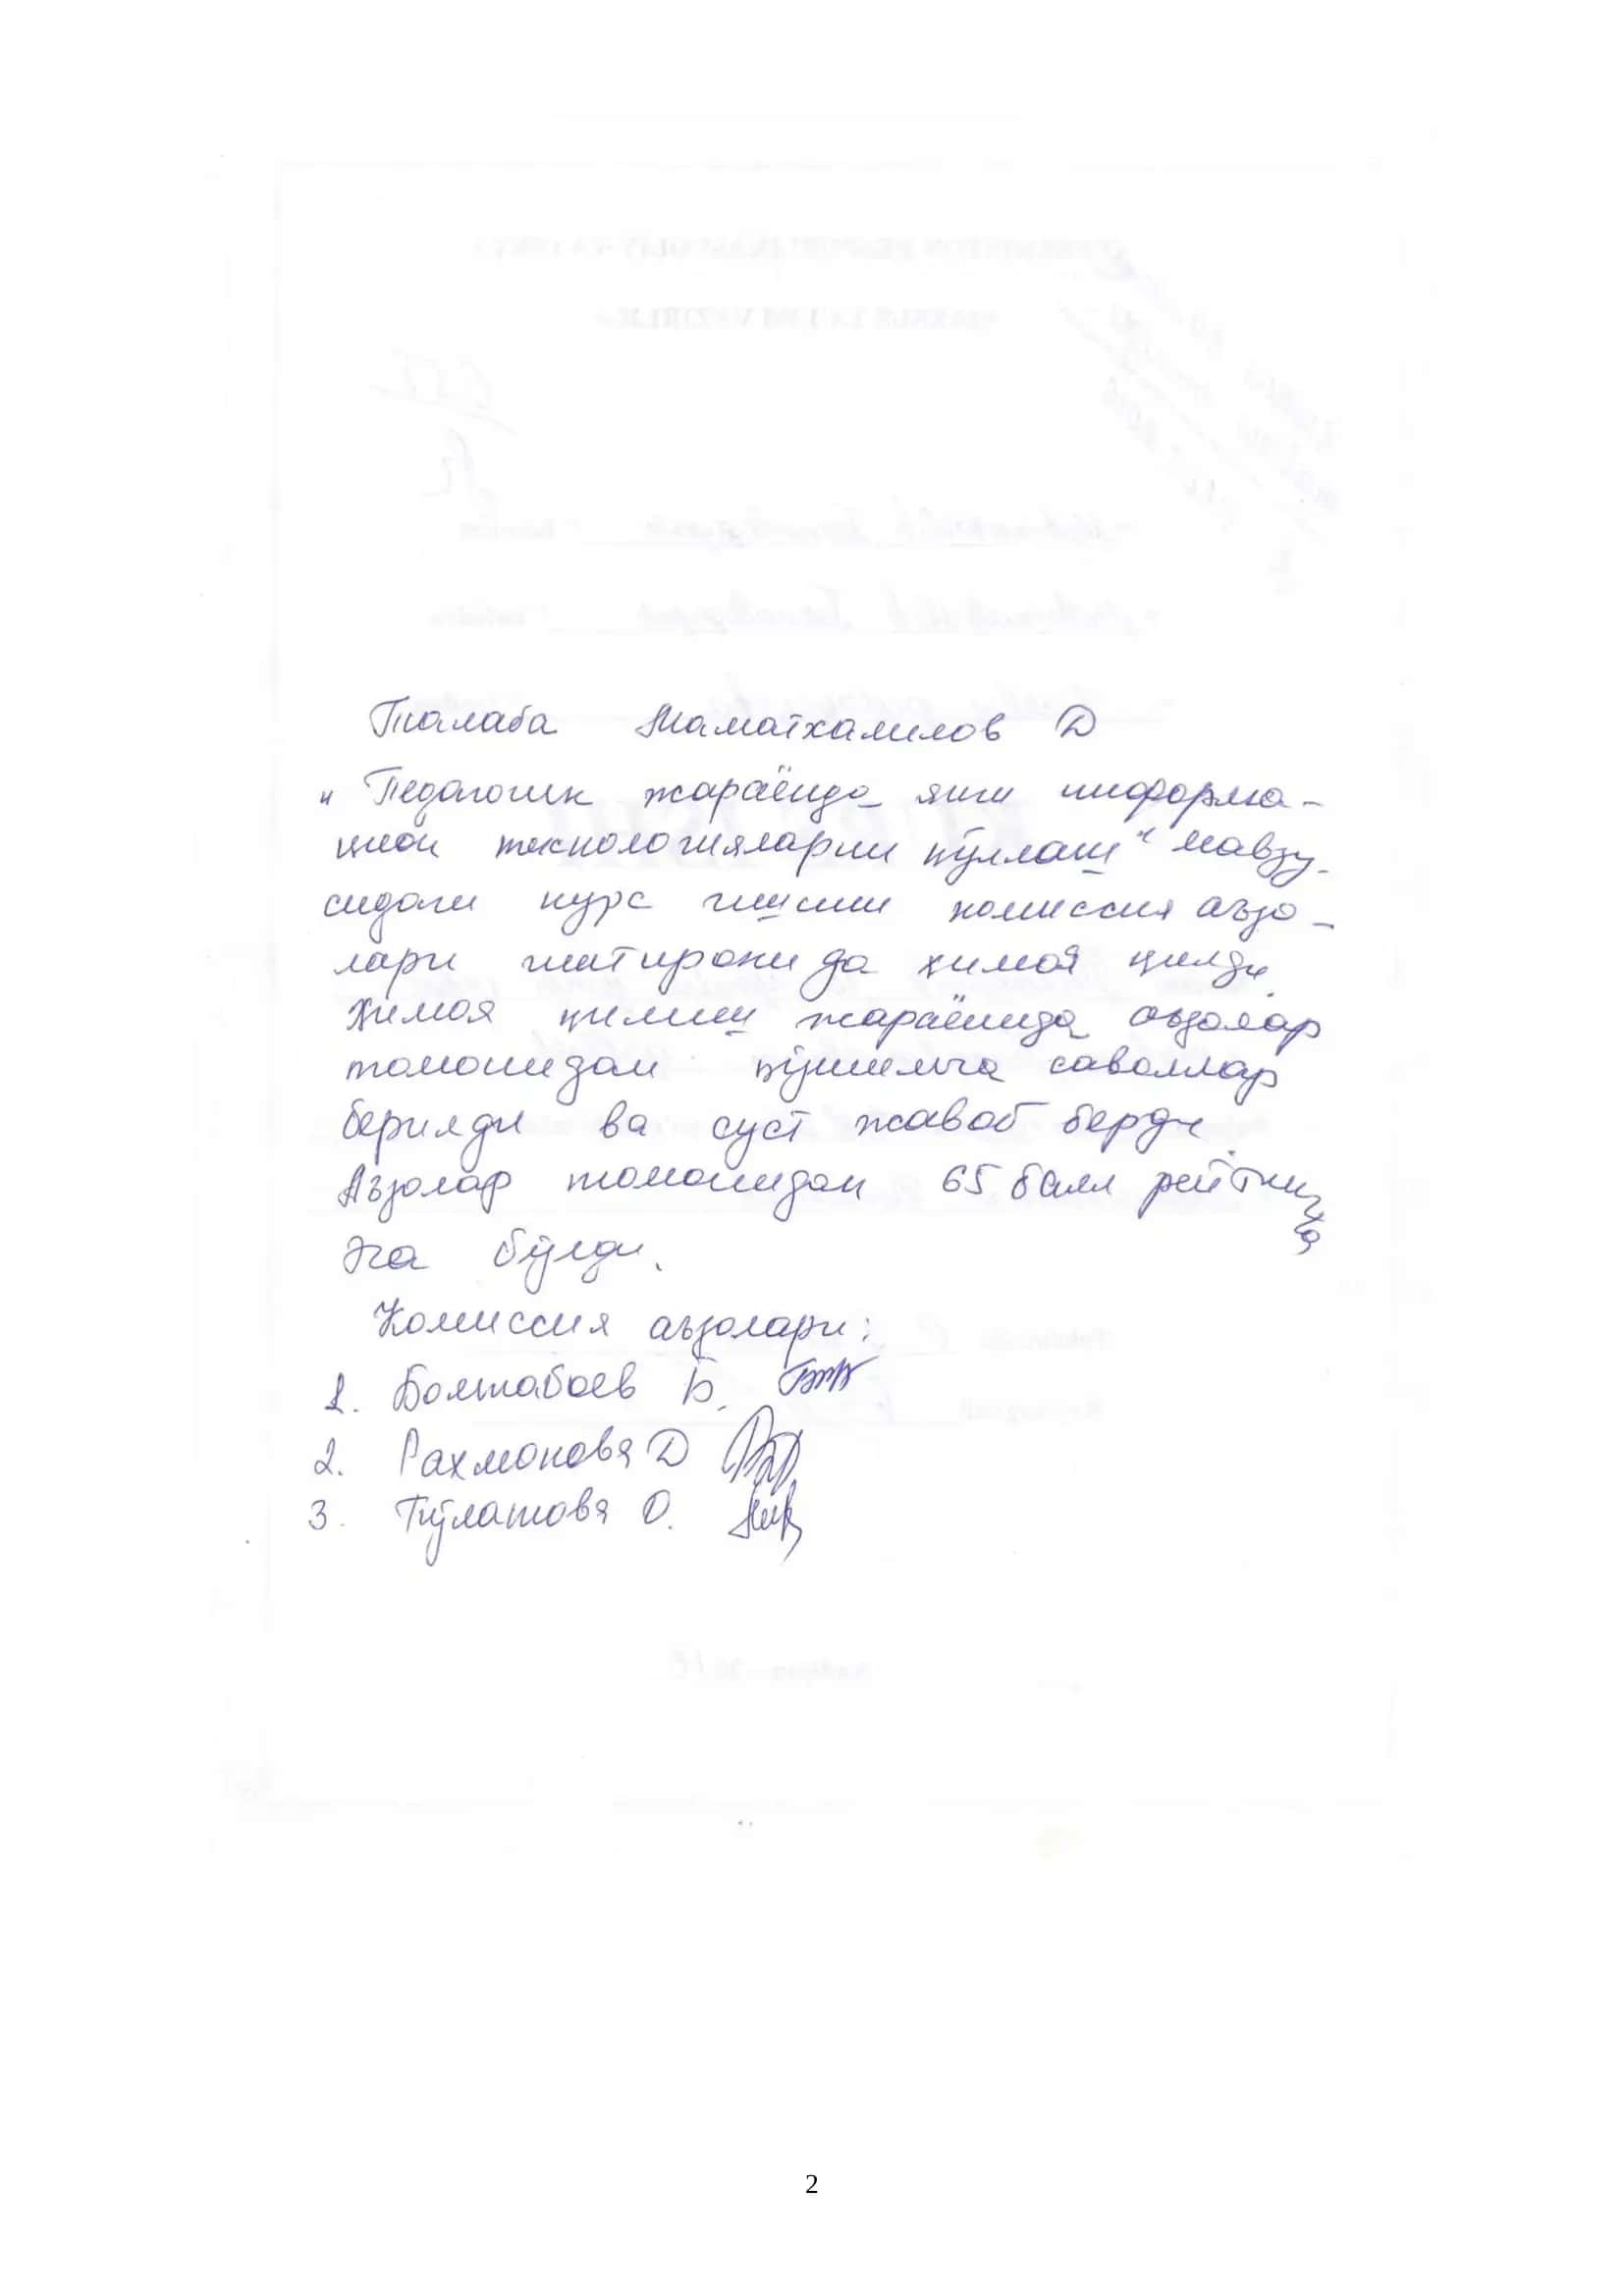 Талаба Маматхалилов Д
„ Педагогик жараёнда янги информа-
цион технологияларни қўллаш“ мавзу-
сидаги курс ишини комиссия аъзо-
лари иштирокида ҳимоя қилди.
Ҳимоя қилиш жараёнида аъзолар
томонидан қўшимча саволлар
берилди ва суст жавоб берди.
Аъзолар томонидан 65 балл рейтингга
эга бўлди.
Комиссия аъзолари:
1. Болтабоев Б.
2. Рахмонова Д
3. Пўлатова О.
2